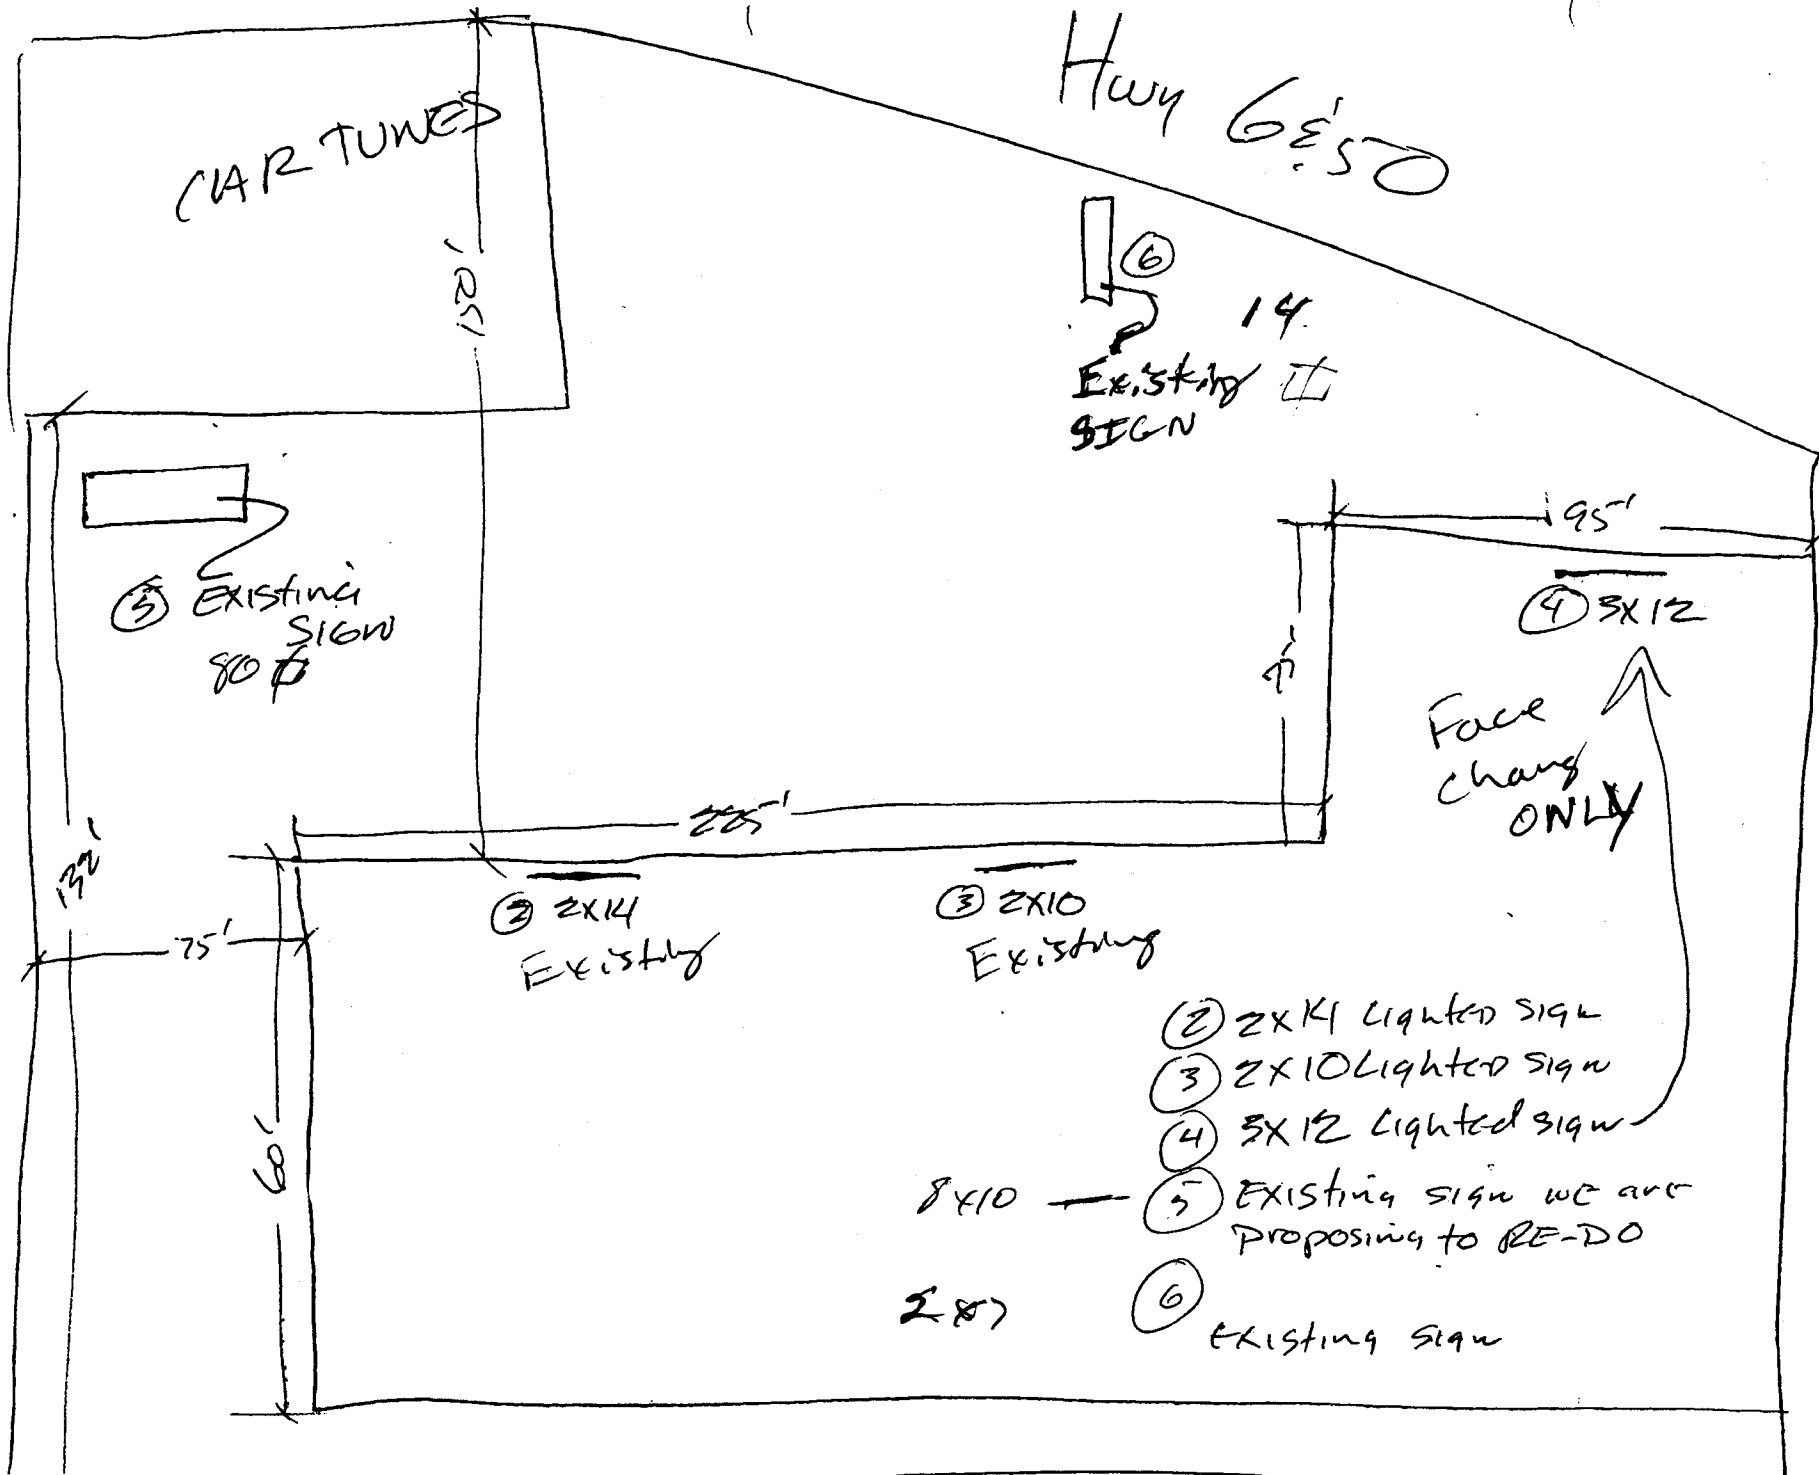 Hwy 6 & 50
CAR TUNES
150'
6
14
Existing
SIGN
95'
5 Existing
SIGN
80
4 3x12
Face
Chang
ONLY
225'
132'
75'
2 2x14
Existing
3 2x10
Existing
60'
2 2x14 Lighted Sign
3 2x10 Lighted Sign
4 3x12 Lighted sign
8x10 — 5 Existing sign we are
proposing to RE-DO
2x7 6
Existing sign